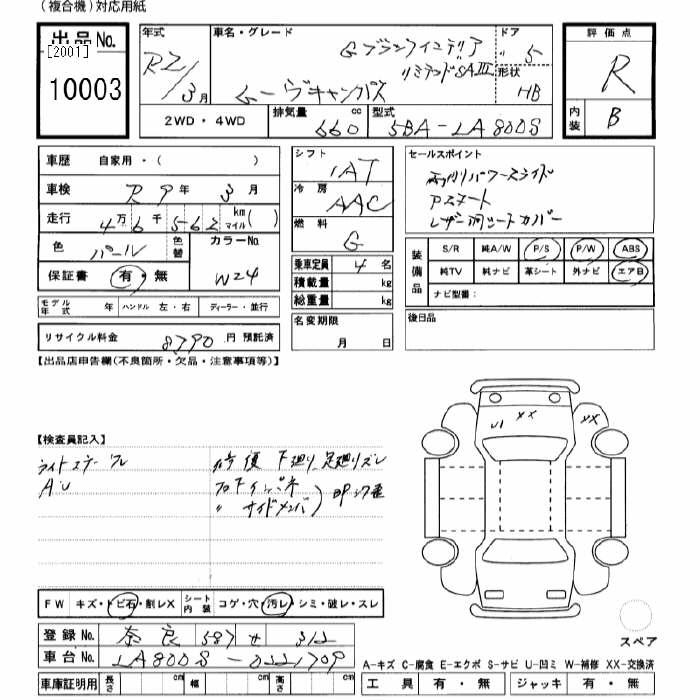 （複合機）対応用紙
出品No.
[2001]
10003
年式 R2/3月
車名・グレード
Gブランインテリア
リミテッドSAIII
ムーヴキャンバス
ドア 5
形状 HB
2WD・4WD
排気量 660 cc
型式 5BA-LA800S
評価点 R
内装 B
車歴 自家用・( )
車検 R9年 3月
走行 4万6千562 km マイル ( )
色 パール 色替 カラーNo. W24
保証書 有・無
モデル年式 年 ハンドル 左・右 ディーラー・並行
リサイクル料金 8790 円 預託済
シフト IAT
冷房 AAC
燃料 G
乗車定員 4名
積載量 kg
総重量 kg
名変期限
月 日
セールスポイント
両側パワースライド
Pスタート
レザー調シートカバー
装備品 S/R 純A/W P/S P/W ABS
純TV 純ナビ 革シート 外ナビ エアB
ナビ型番：
後日品
【出品店申告欄(不良箇所・欠品・注意事項等)】
【検査員記入】
AU
修復 下廻り足廻りズレ
サイドメンバ
U1 XX XX
FW キズ・トビ石・割レX シート内装 コゲ・穴・汚レ・シミ・破レ・スレ
スペア
登録No. 奈良 587 せ 312
車台No. LA800S-0221709
A-キズ C-腐食 E-エクボ S-サビ U-凹ミ W-補修 XX-交換済
車庫証明用 長さ cm 幅 cm 高さ cm
工具 有・無 ジャッキ 有・無